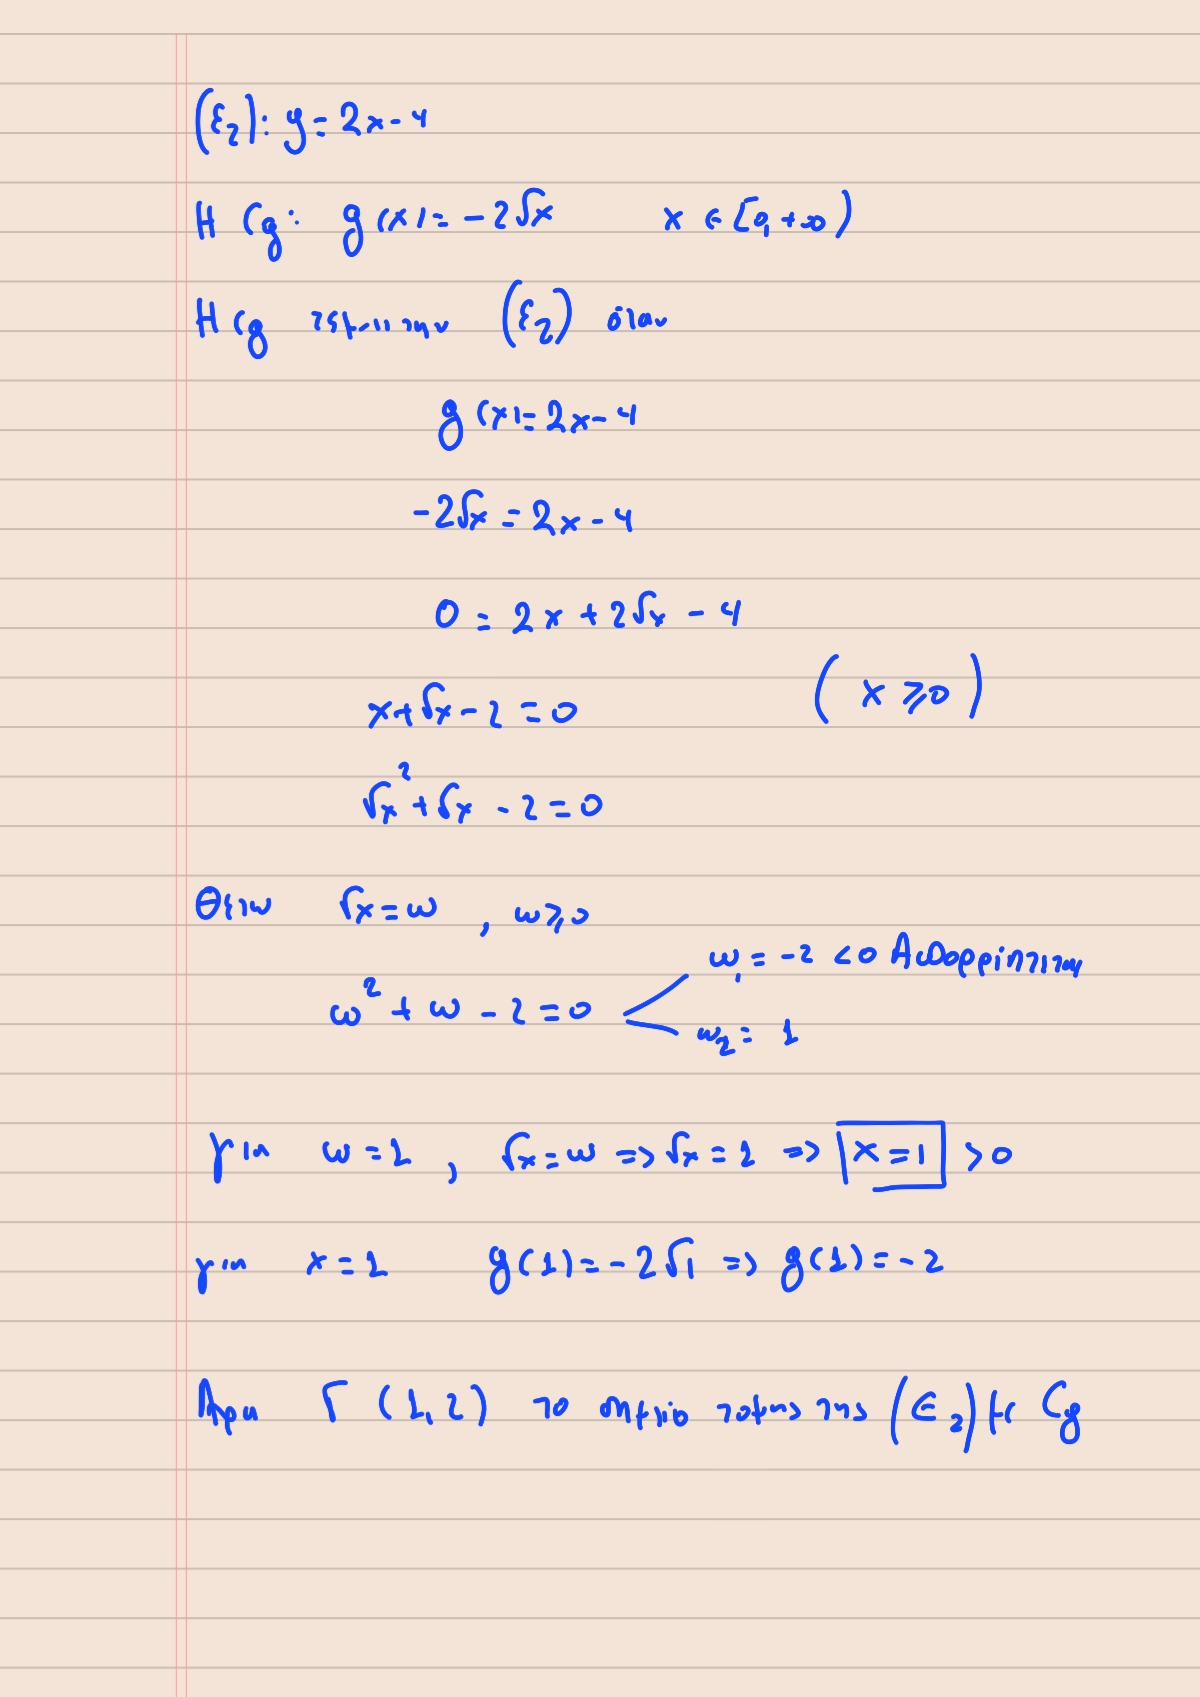 (ε₂): y = 2x - 4
Η Cg: g(x) = -2√x x ∈ [0, +∞)
Η Cg τέμνει την (ε₂) όταν
g(x) = 2x - 4
-2√x = 2x - 4
0 = 2x + 2√x - 4
x + √x - 2 = 0 (x ⩾ 0)
√x² + √x - 2 = 0
Θέτω √x = ω , ω ⩾ 0
ω₁ = -2 < 0 Απορρίπτεται
ω² + ω - 2 = 0
ω₂ = 1
για ω = 1 , √x = ω => √x = 1 => x = 1 > 0
για x = 1 g(1) = -2√1 => g(1) = -2
Άρα Γ (1, 2) το σημείο τομής της (ε₂) με Cg